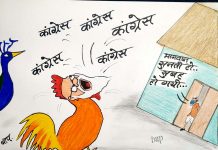 कांग्रेस कांग्रेस कांग्रेस
कांग्रेस कांग्रेस
भागवान
सुनती हो..
सुबह
हो गयी..